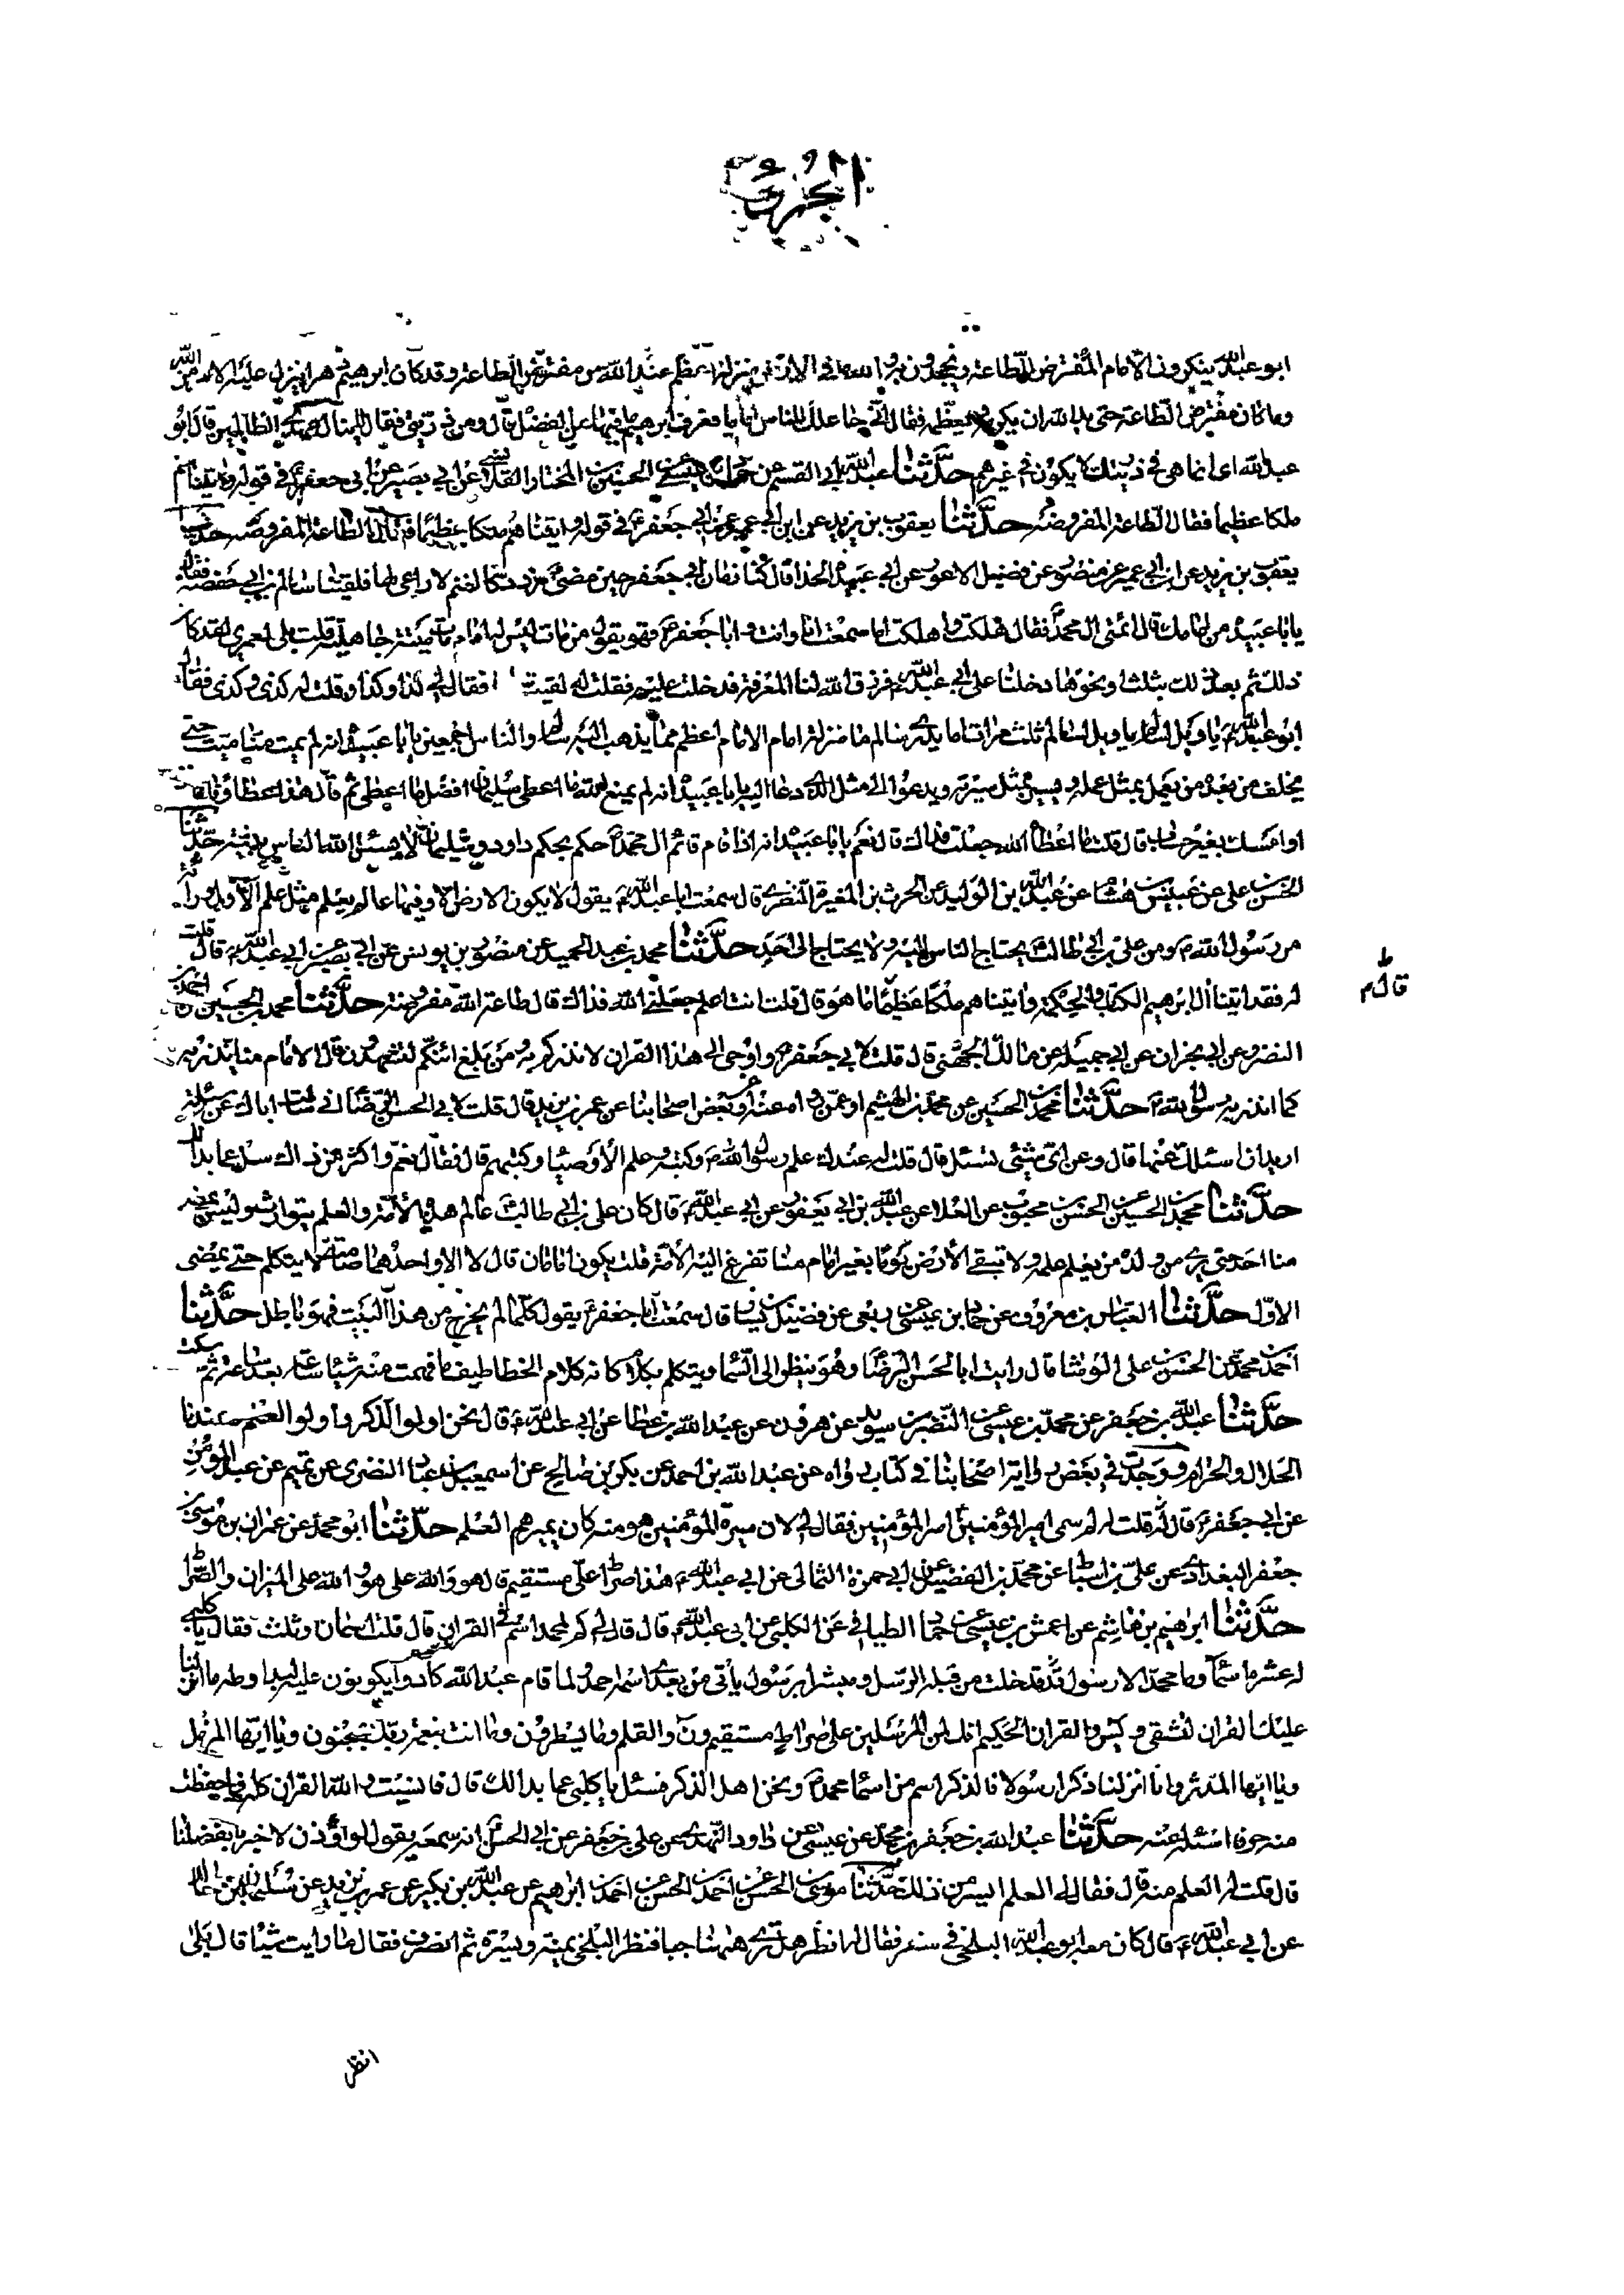 الجزء
ابو عبد الله ينكرون الامام المفترض الطاعة ويجحدون به والله ما فى الارض منزلة اعظم عند الله من مفترض الطاعة وقد كان ابرهيم دهرا ينزل عليه الامر من الله
وما كان مفترض الطاعة حتى بدا لله ان يكرمه ويعظمه فقال انى جاعلك للناس اماما فعرف ابرهيم ما فيها من الفضل قال ومن ذريتى فقال لا ينال عهدى الظالمين قال ابو
عبد الله اى انما هى فى ذريتك لا يكون فى غيرهم حدثنا عبد الله ابى القسم عن محمد بن عيسى عن الحسين بن المختار القلانسى عن ابى بصير عن ابى جعفر ع فى قوله واتيناهم
ملكا عظيما فقال الطاعة المفروضة حدثنا يعقوب بن يزيد عن ابن ابى عمير عن ابى جعفر ع فى قوله واتيناهم ملكا عظيما قال الطاعة المفروضة حدثنا
يعقوب بن يزيد عن ابن ابى عمير عن منصور عن فضيل الاعور عن ابى عبيدة الحذا قال كنا زمان ابى جعفر حين مضى ع نتردد كالغنم لا راعى لها فلقينا سالم بن ابى حفصة فقال
يا ابا عبيدة من امامك قال ائمتى ال محمد فقال هلكت واهلكت اما سمعت انا وانت ابا جعفر ع وهو يقول من مات ليس له امام مات ميتة جاهلية قلت بلى لعمرى لقد كان
ذلك ثم بعد ذلك بثلث او نحوها دخلنا على ابى عبد الله ع فرزق الله لنا المعرفة فدخلت عليه فقلت له لقيت سالما فقال لى كذا وكذا وقلت له كذى وكذى فقال
ابو عبد الله ع يا ويل لسالم يا ويل لسالم ثلث مرات اما يدرى سالم ما منزلة الامام الامام اعظم مما يذهب اليه سالم والناس اجمعين يا ابا عبيدة انه لم يمت منا ميت حتى
يخلف من بعده من يعمل بمثل عمله ويسير بمثل سيرته ويدعو الى مثل الذى دعا اليه يا ابا عبيدة انه لم يمنع الله ما اعطى سليمان افضل مما اعطى ثم قال هذا عطاؤنا فامنن
او امسك بغير حساب قال قلت ما اعطاه الله جعلت فداك قال نعم يا ابا عبيدة انه اذا قام قائم ال محمد حكم بحكم داود وسليمان لا يسئل الناس بينة حدثنا
الحسن بن على عن عبيس بن هشام عن عبد الله بن الوليد عن الحرث بن المغيرة النضرى قال سمعت ابا عبد الله ع يقول لا يكون الارض الا وفيها عالم يعلم مثل علم الاول وراثة
من رسول الله ص ومن على بن ابى طالب يحتاج الناس اليه ولا يحتاج الى احد حدثنا محمد بن عبد الحميد عن منصور بن يونس عن ابى بصير عن ابى عبد الله ع قال قلت
له فقد اتينا ال ابرهيم الكتاب والحكمة واتيناهم ملكا عظيما ما هو قال قلت انت اعلم جعلنى الله فداك قال طاعة الله مفروضة حدثنا محمد بن الحسين عن احمد بن
قال م
ط
النضر وعن ابى نجران عن ابى جميلة عن مالك الجهنى قال قلت لابى جعفر ع واوحى الى هذا القران لانذركم به ومن بلغ ائنكم لتشهدون قال الامام منا ينذر به
كما انذر به رسول الله ص حدثنا محمد بن الحسين عن محمد بن الهيثم او عمن رواه عنه او بعض اصحابنا عن عمر بن يزيد قال قلت لابى الحسن الرضا ع انى سئلت اباك عن مسئلة
اريد ان اسئلك عنها قال وعن اى شيئ تسئل قال قلت له عندك علم رسول الله ص وكتبه وعلم الاوصيا وكتبهم قال فقال نعم واكثر من ذاك سل عما بدا لك
حدثنا محمد بن الحسين عن الحسن بن محبوب عن العلا عن عبد الله بن ابى يعفور عن ابى عبد الله ع قال كان على بن ابى طالب ع عالم هذه الامة والعلم يتوارث وليس يمضى
منا احد حتى يرى من ولده من يعلم علمه ولا تبقى الارض يوما بغير امام منا تفزع اليه الامة قلت يكون امامان قال لا الا واحدهما صامت لا يتكلم حتى يمضى
الاول حدثنا العباس بن معروف عن حماد بن عيسى عن ربعى عن فضيل بن يسار قال سمعت ابا جعفر ع يقول كلما لم يخرج من هذا البيت فهو باطل حدثنا
احمد بن محمد عن الحسن بن على الوشا قال رايت ابا الحسن الرضا ع وهو ينظر الى السما ويتكلم بكلام كانه كلام الخطاطيف ما فهمت منه شيئا ساعة بعد ساعة ثم سكت
حدثنا عبد الله بن جعفر عن محمد بن عيسى عن النضر بن سويد عن هرون عن عبد الله بن عطا عن ابى عبد الله ع قال نحن اولوا الذكر واولوا العلم وعندنا
الحلال والحرام ووجدت فى بعض رواية اصحابنا فى كتاب رواه عن عبد الله بن احمد عن بكر بن صالح عن اسمعيل بن عباد النضرى عن تميم عن عبد المؤمن
عن ابى جعفر ع قال قلت له لم سمى امير المؤمنين امير المؤمنين فقال لى لان ميرة المؤمنين هو منه كان يميرهم العلم حدثنا ابو محمد عن عمران بن موسى عن
جعفر البغدادى عن على بن اسباط عن محمد بن الفضيل عن ابى حمزة الثمالى عن ابى عبد الله ع هذا صراط على مستقيم قال هو والله على هو والله على الميزان والصراط
حدثنا ابرهيم بن هاشم عن اعمش بن عيسى عن حماد الطيافى عن الكلبى عن ابى عبد الله ع قال قال لى كم لمحمد اسم فى القران قال قلت اسمان وثلث فقال يا كلبى
له عشر ما سما وما محمد الا رسول قد خلت من قبله الرسل ومبشرا برسول يأتى من بعدى اسمه احمد ولما قام عبد الله كادوا يكونون عليه لبدا وطه ما انزلنا
عليك القران لتشقى ويس والقران الحكيم انك لمن المرسلين على صراط مستقيم ون والقلم وما يسطرون وما انت بنعمة ربك بمجنون ويا ايها المزمل
ويا ايها المدثر وانا انزلنا ذكرا رسولا فالذكر اسم من اسما محمد ص ونحن اهل الذكر فسئل يا كلبى عما بدا لك قال فانسيت والله القران كله فما حفظت
منه حرفا اسئله عنه حدثنا عبد الله بن جعفر بن محمد عن عيسى عن داود النهدى عن على بن جعفر عن ابى الحسن ع انه سمعه يقول لو اذن لاخبرنا بفضلنا
قال قلت له العلم منه قال فقال لى العلم ايسر من ذلك حدثنا موسى بن الحسن عن احمد بن الحسن عن احمد بن ابرهيم عن عبد الله بن بكير عن عمر بن يزيد عن سليمان بن خالد
عن ابى عبد الله ع قال كان معه ابو عبد الله البلخى فى سفر فقال له انظر هل ترى ههنا جبا فنظر البلخى يمنة ويسرة ثم انصرف فقال ما رايت شيئا قال بلى
انظر